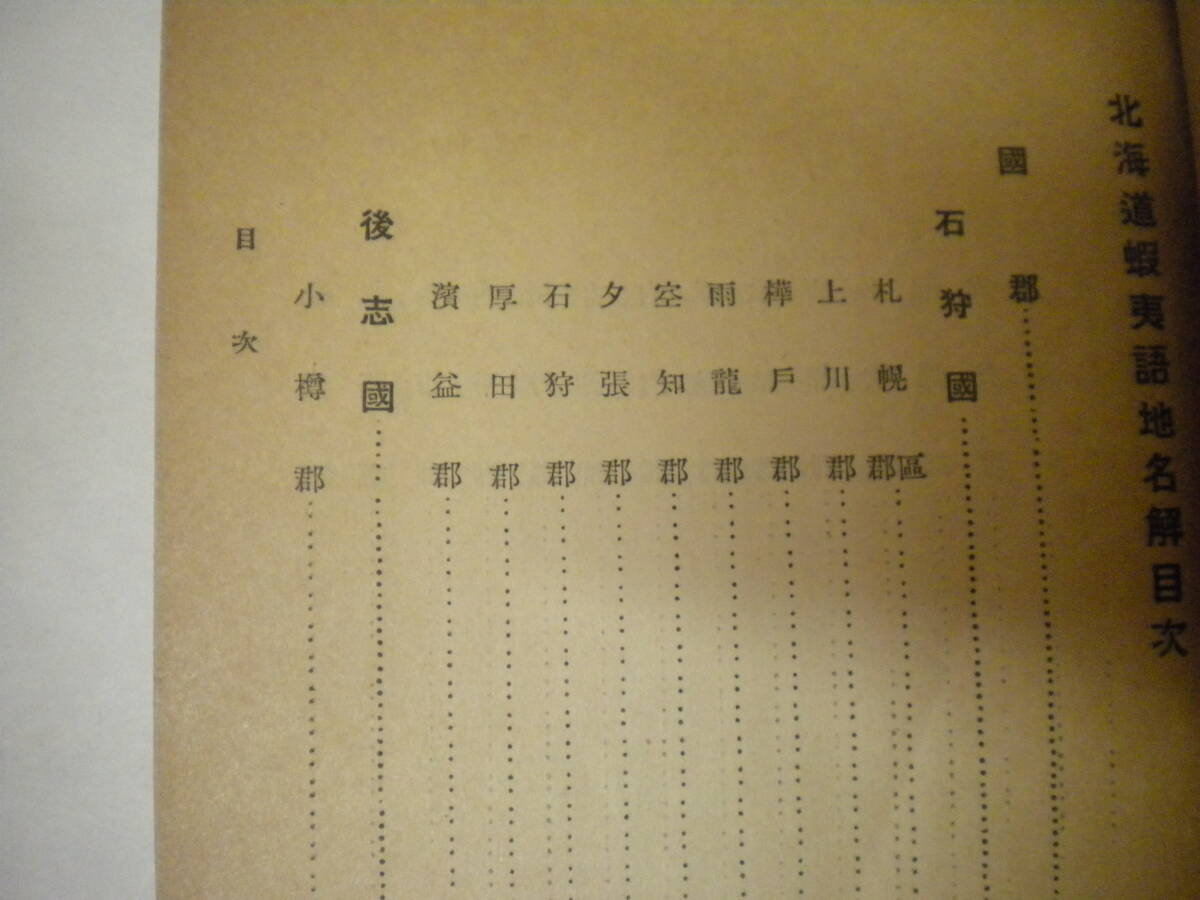 北海道蝦夷語地名解目次
國郡
石狩國
札幌區郡
上川郡
樺戶郡
雨龍郡
空知郡
夕張郡
石狩郡
厚田郡
濱益郡
後志國
小樽郡
目次